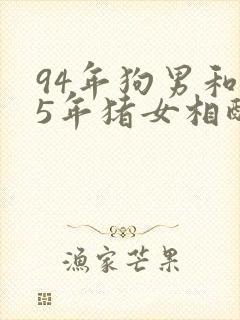 94年狗男和
5年猪女相配
渔家芒果